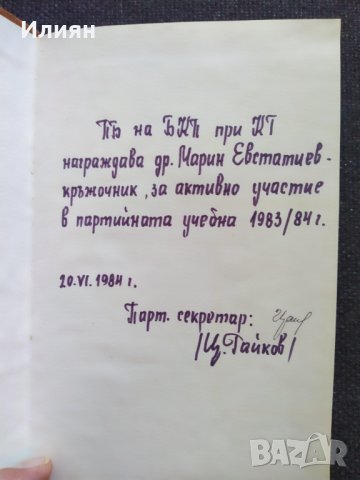 Илиян
ПБ на БКП при КГ
награждава др. Марин Евстатиев-
кръжочник, за активно участие
в партийната учебна 1983/84 г.
20.VI.1984 г.
Парт. секретар:
/Ц. Гайков/
БАЗАР